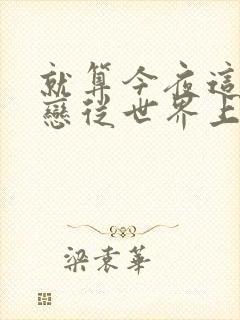 就算今夜這
戀從世界上
梁袁華